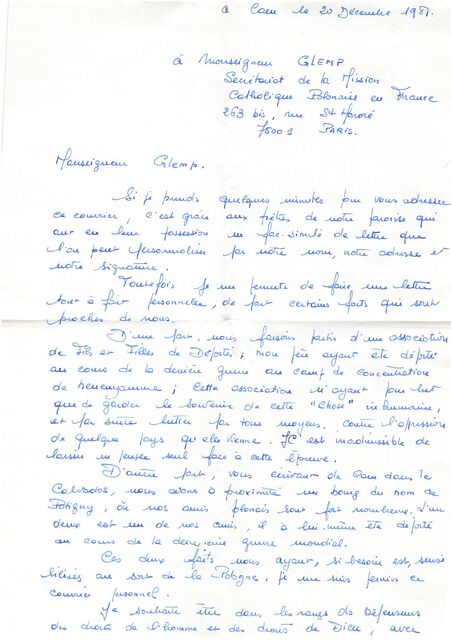 à Caen le 20 Décembre 1981.
à Monseigneur GLEMP
Secrétariat de la Mission
Catholique Polonaise en France
263 bis, rue St Honoré
75001 PARIS.
Monseigneur Glemp.
Si je prends quelques minutes pour vous adresser
ce courrier, c'est grâce aux prêtres de notre paroisse qui
ont en leur possession un fac-similé de lettre que
l'on peut personnaliser par notre nom, notre adresse et
notre signature.
Toutefois je me permets de faire une lettre
tout à fait personnelle, de part certains faits qui sont
proches de nous.
D'une part, nous faisons partis d'une association
de Fils et Filles de Déportés ; mon père ayant été déporté
au cours de la dernière guerre au camp de concentration
de Neuengamme ; cette association n'ayant pour but
que de garder le souvenir de cette "chose" inhumaine,
et par suite lutter par tous moyens contre l'oppression
de quelque pays qu'elle vienne. Il est inadmissible de
laisser un peuple seul face à cette épreuve.
D'autre part, vous écrivant de Caen dans le
Calvados, nous avons à proximité un bourg du nom de
Potigny, où nos amis polonais sont fort nombreux. L'un
deux est un de nos amis, il a lui-même été déporté
au cours de la dernière guerre mondial.
Ces deux faits nous ayant, si besoin est, sensi
bilisés au sort de la Pologne, je me suis permis ce
courrier personnel.
Je souhaite être dans les rangs des défenseurs
des droits de l'homme et des droits de Dieu, avec